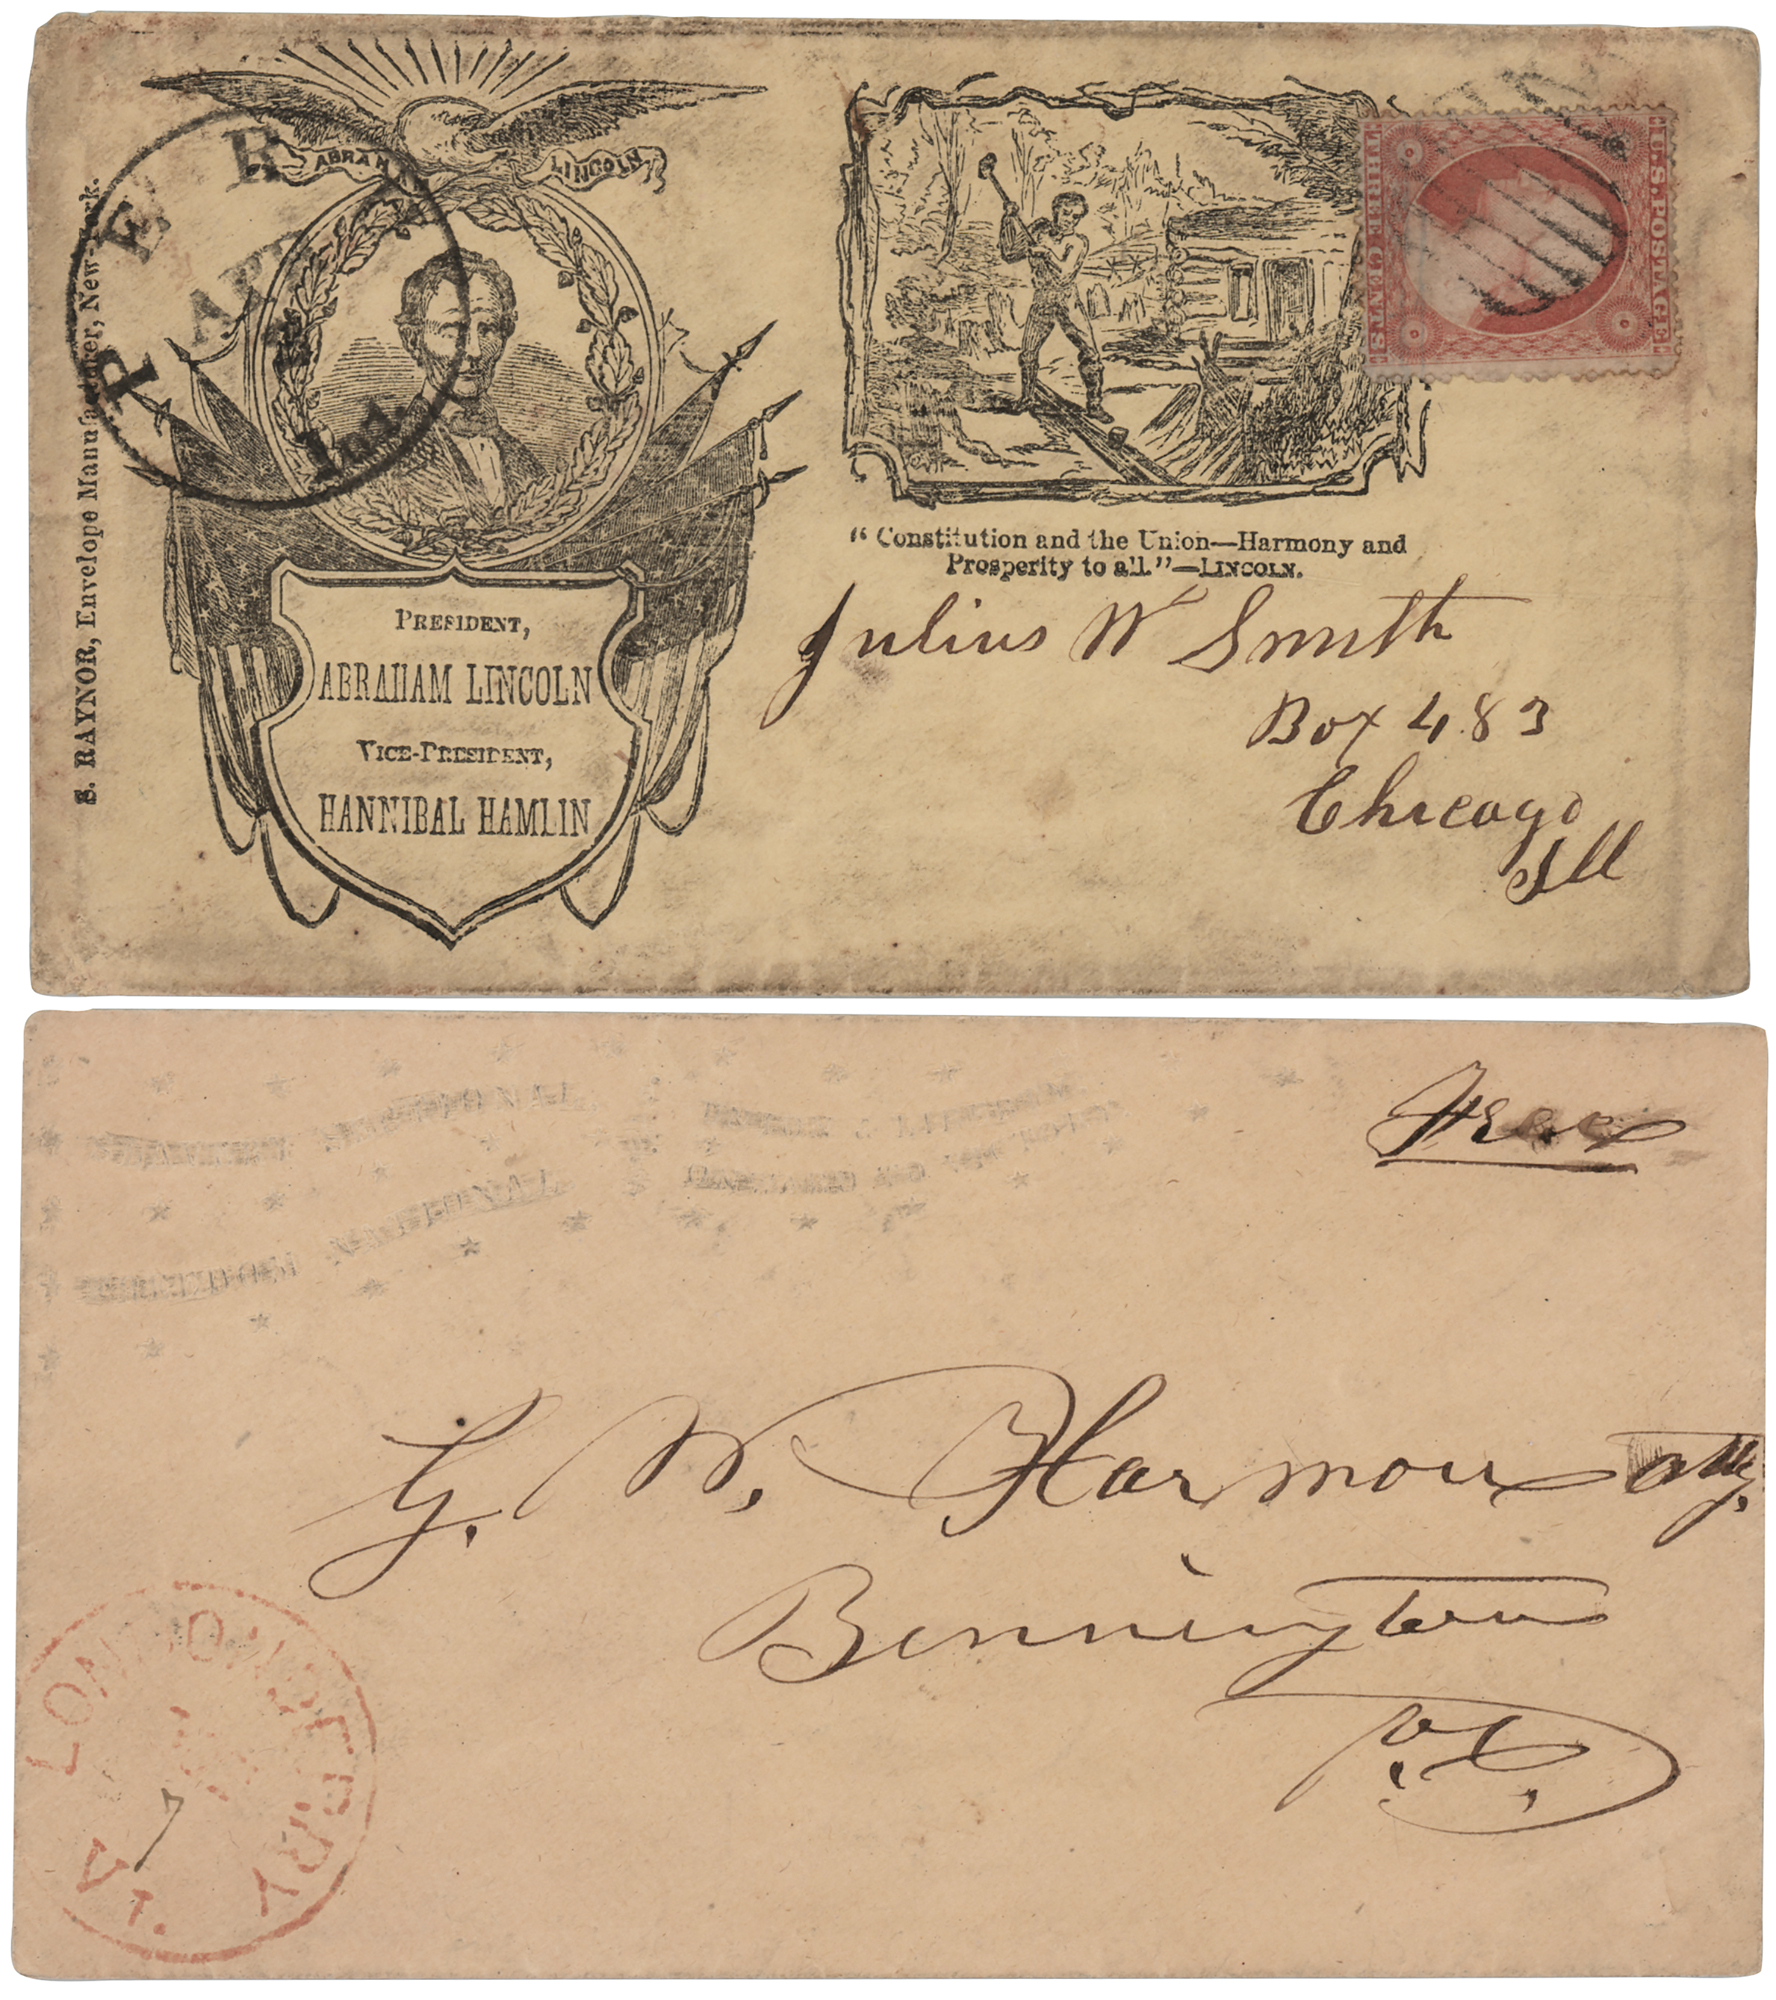 ABRAHAM LINCOLN
PERU
APR
Ind.
S. RAYNOR, Envelope Manufacturer, New-York.
U.S. POSTAGE
THREE CENTS.
"Constitution and the Union—Harmony and
Prosperity to all."—LINCOLN.
PRESIDENT,
ABRAHAM LINCOLN
VICE-PRESIDENT,
HANNIBAL HAMLIN
Julius W Smith
Box 483
Chicago
Ill
Free
G. W. Harmon atty.
Bennington
Vt.
LONDONDERRY
7
Vt.